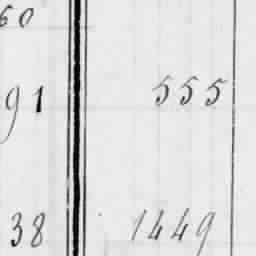 60
91 555
38 1449